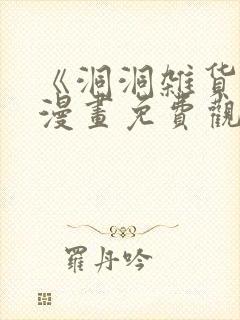 《洞洞雑货
漫畫免費觀
羅丹吟